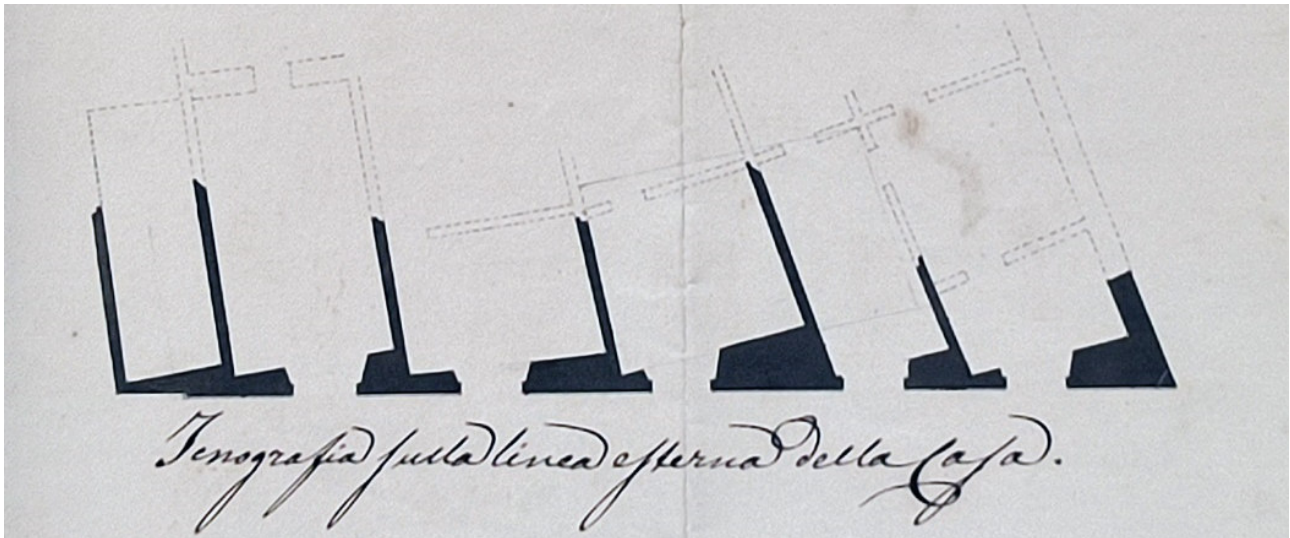 Icnografia sulla linea esterna della Casa.